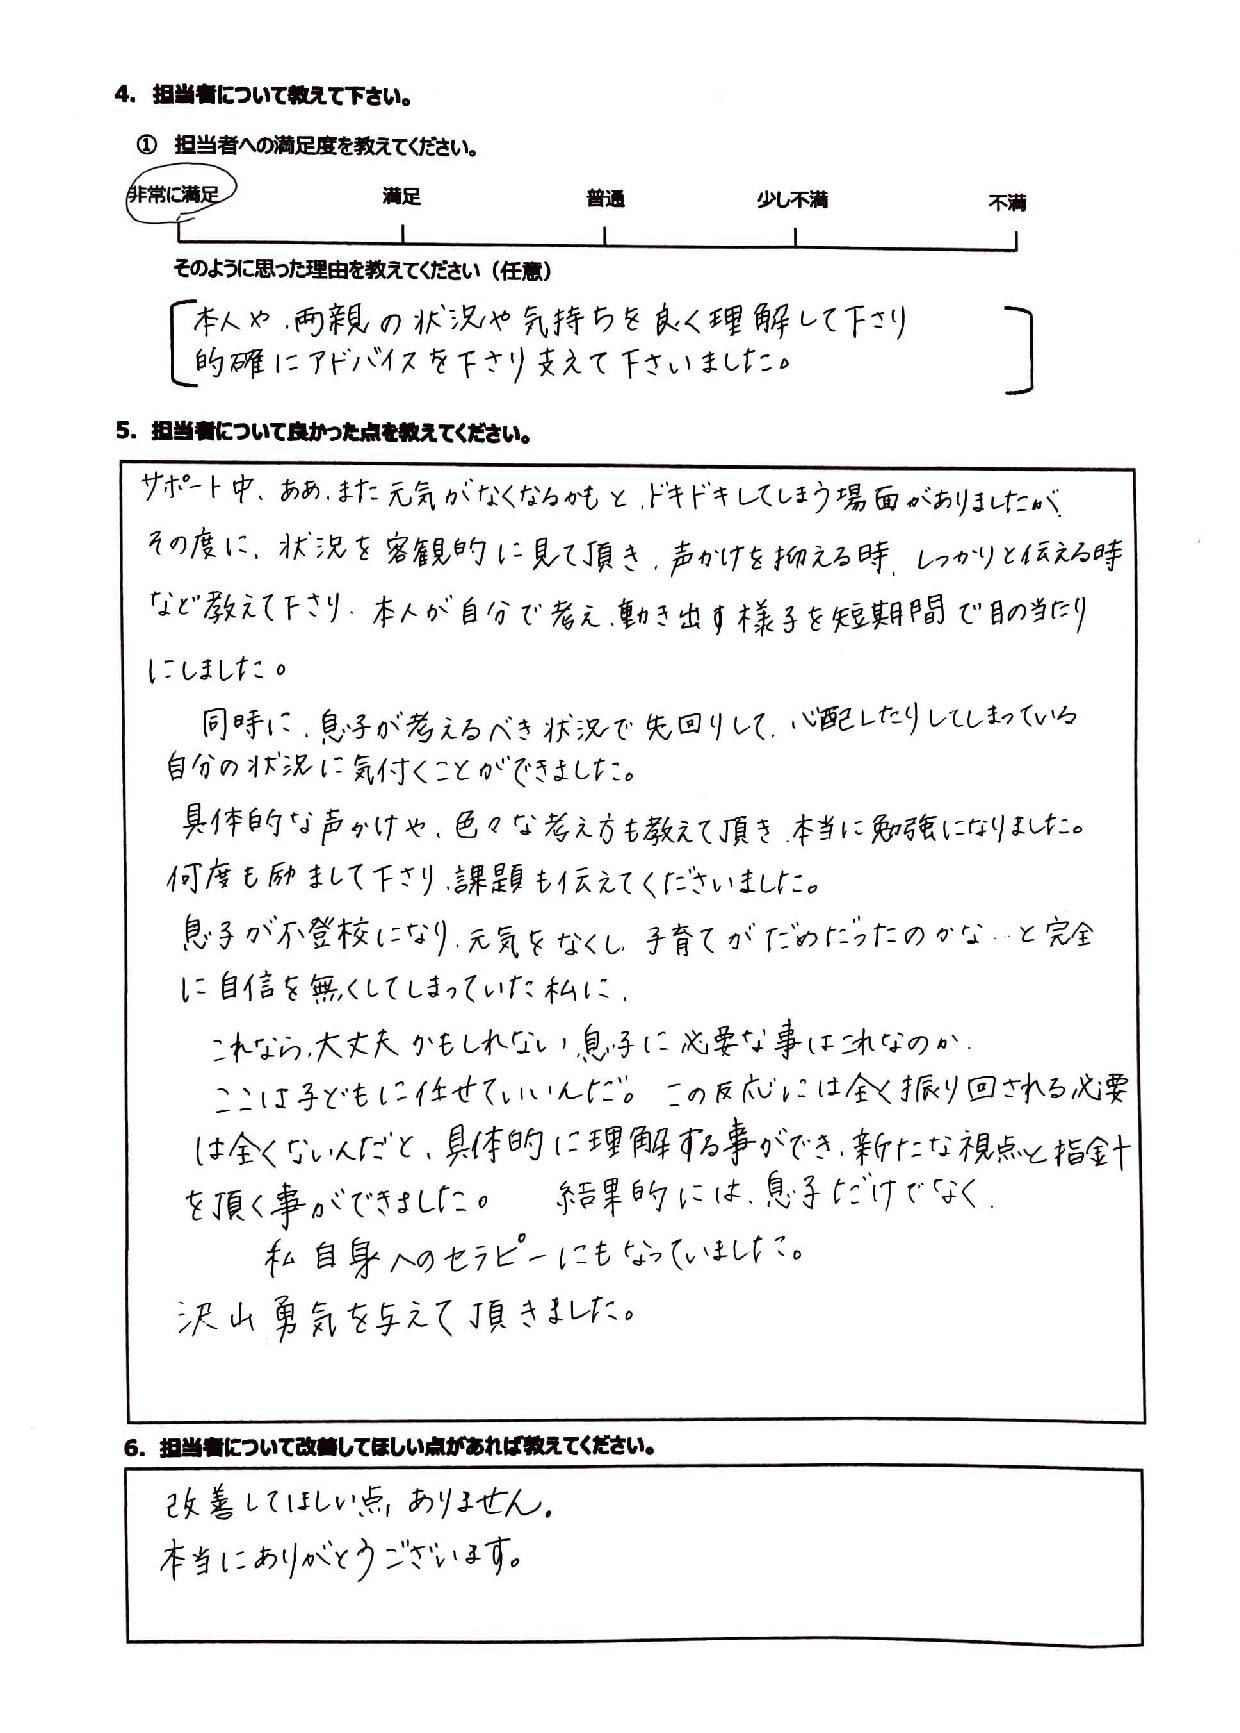 4. 担当者について教えて下さい。
① 担当者への満足度を教えてください。
非常に満足 満足 普通 少し不満 不満
そのように思った理由を教えてください（任意）
本人や、両親の状況や気持ちを良く理解して下さり
的確にアドバイスを下さり支えて下さいました。
5. 担当者について良かった点を教えてください。
サポート中、ああ、また元気がなくなるかもと、ドキドキしてしまう場面がありましたが、
その度に、状況を客観的に見て頂き、声かけを抑える時、しっかりと伝える時
など教えて下さり、本人が自分で考え、動き出す様子を短期間で目の当たり
にしました。
同時に、息子が考えるべき状況で先回りして、心配したりしてしまっている
自分の状況に気付くことができました。
具体的な声かけや、色々な考え方も教えて頂き、本当に勉強になりました。
何度も励まして下さり、課題も伝えてくださいました。
息子が不登校になり、元気をなくし、子育てがだめだったのかな…と完全
に自信を無くしてしまっていた私に、
これなら、大丈夫かもしれない、息子に必要な事はこれなのか、
ここは子どもに任せていいんだ。この反応には全く振り回される必要
は全くないんだと、具体的に理解する事ができ、新たな視点と指針
を頂く事ができました。 結果的には、息子だけでなく、
私自身へのセラピーにもなっていました。
沢山勇気を与えて頂きました。
6. 担当者について改善してほしい点があれば教えてください。
改善してほしい点、ありません。
本当にありがとうございます。